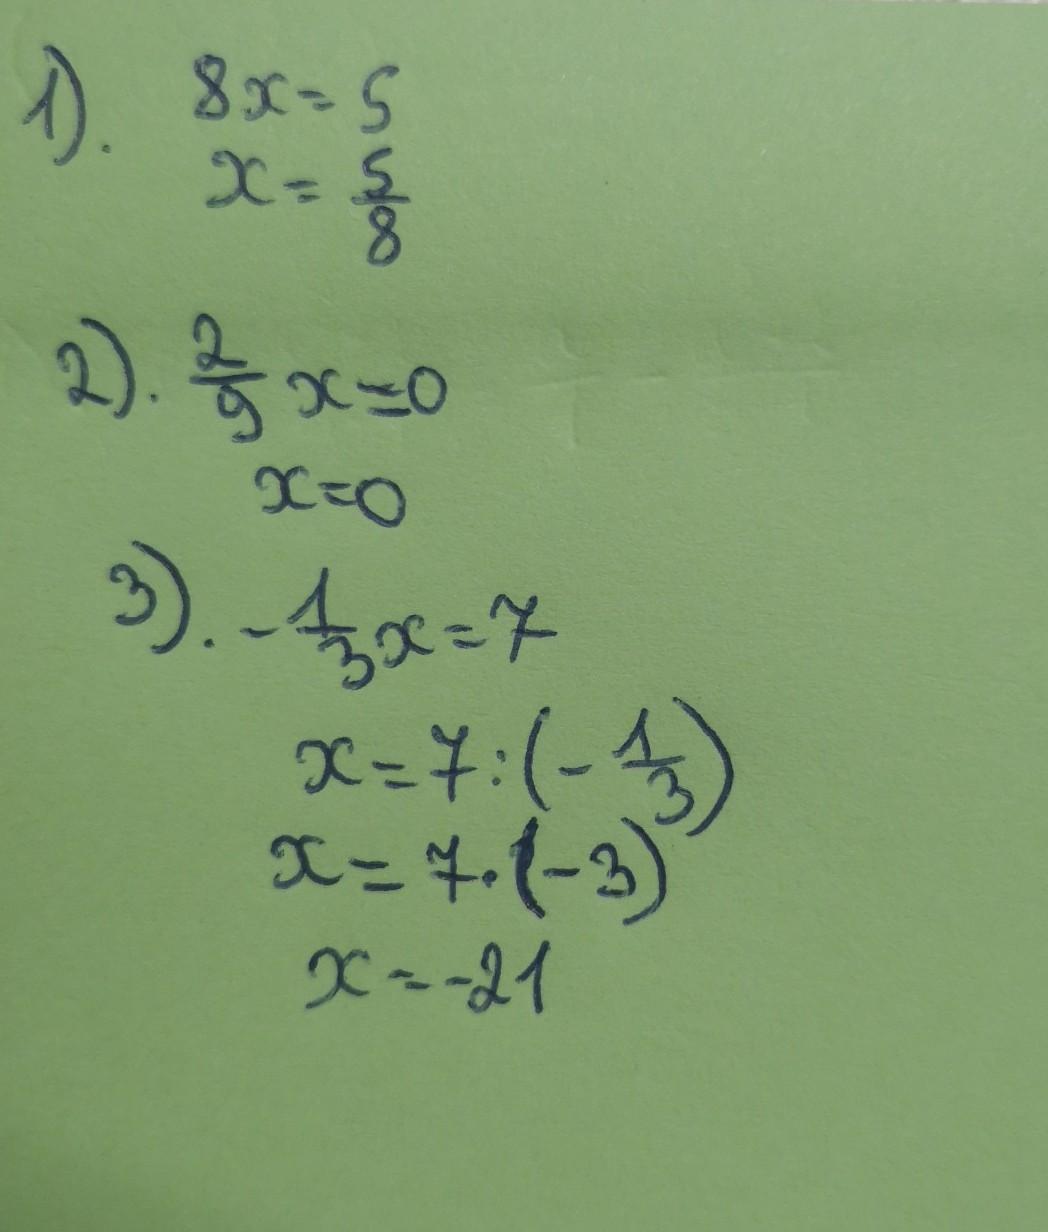 1). 8x = 5
x = 5/8
2). 2/9 x = 0
x = 0
3). - 1/3 x = 7
x = 7 : (- 1/3)
x = 7 · (-3)
x = -21